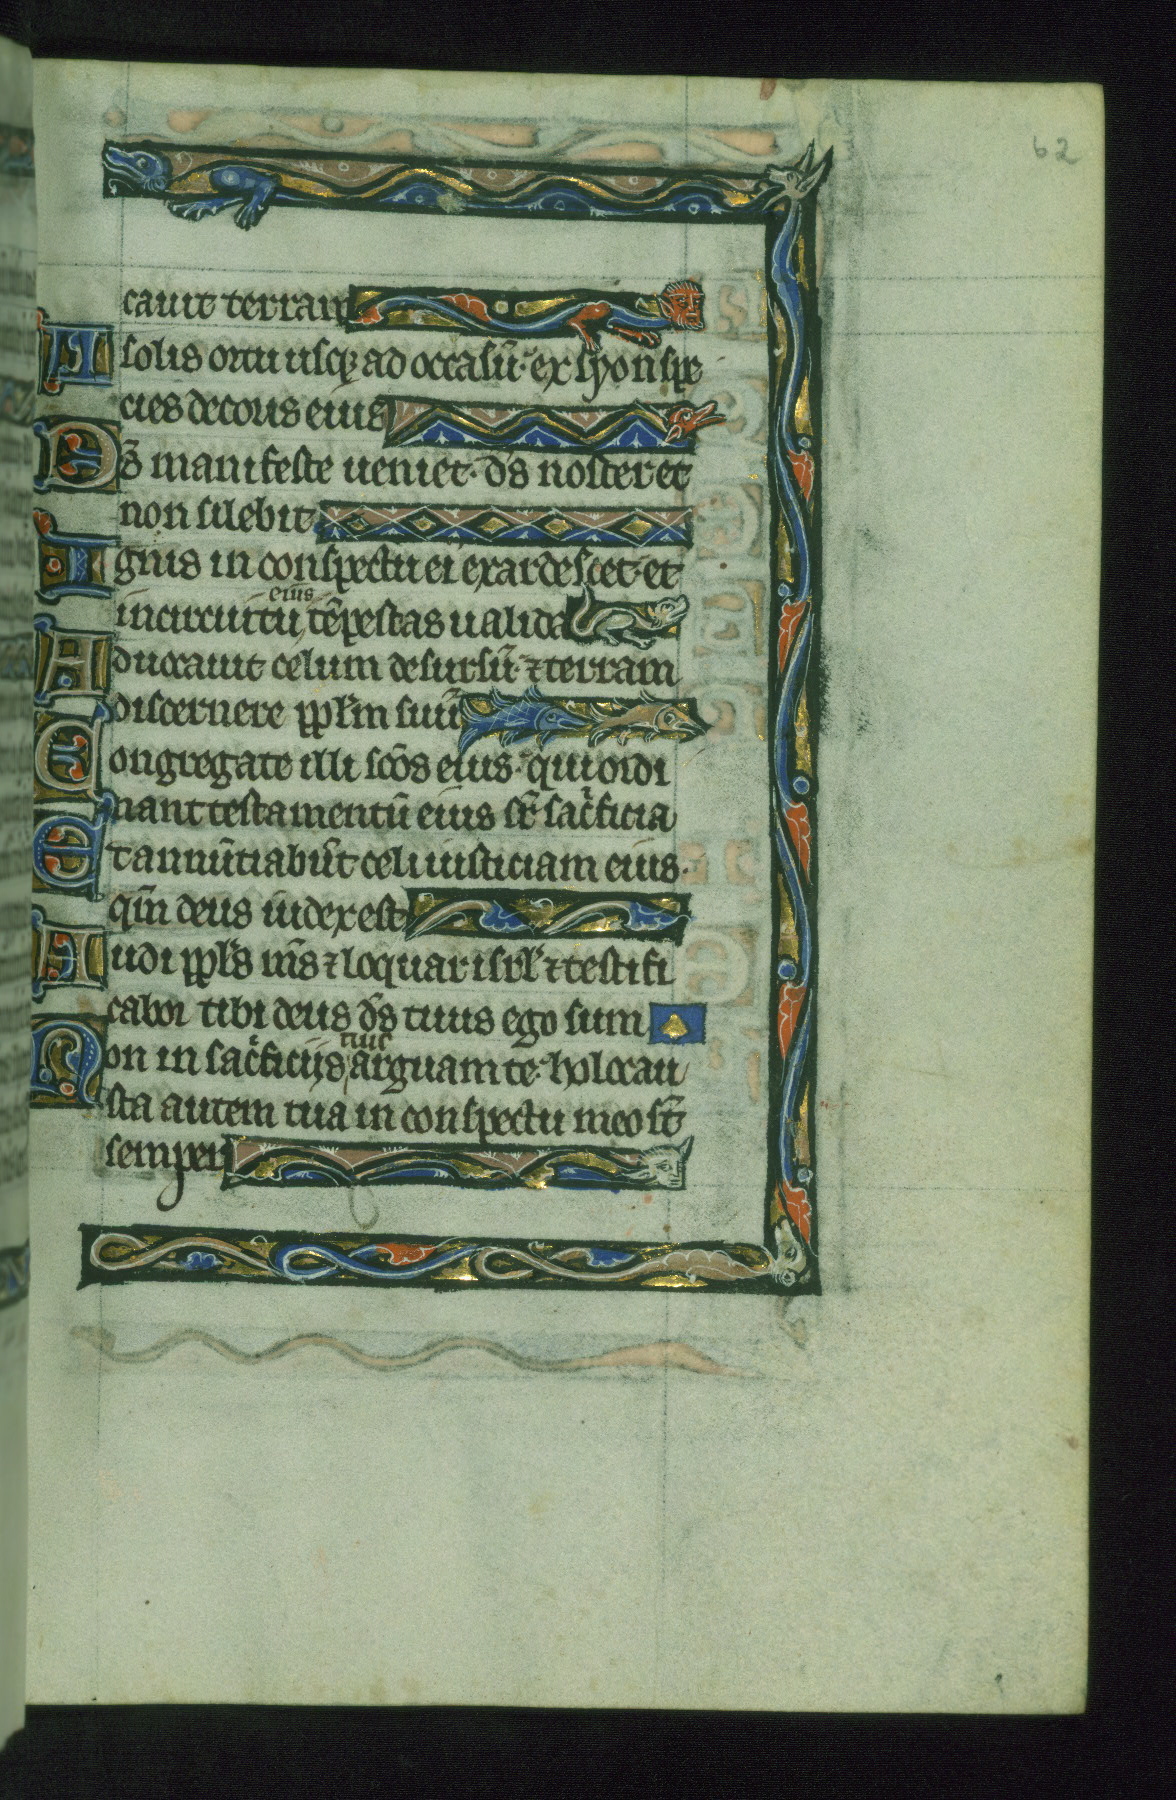 62
cauit terram
A solis ortu usq; ad occasū· ex syon spe
cies decoris eius
D s̄ manifeste ueniet· d̄s noster et
non silebit
I gnis in conspectu ei exardescet· et
eius
in circuitu, tēpestas ualida
A duocauit celum desursū· ⁊ terram
discernere pplm̄ suū
C ongregate illi sc̄os eius· qui ordi
nant testamentū eius sr̄ sac̄ficia
E t annūtiabūt celi iusticiam eius·
qm̄ deus iudex est
A udi ppl̄s m̄s ⁊ loquar isrl̄ ⁊ testifi
cabor tibi deus d̄s tuus ego sum
tuis
N on in sac̄ficijs, arguam te· holocau
sta autem tua in conspectu meo st̄
semper